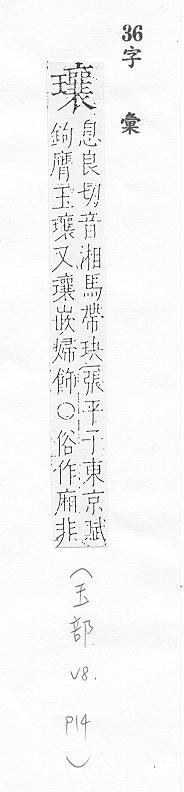 36
字彙
瓖
息良切音湘馬帶玦張平子東京賦
鉤膺玉瓖又瓖嵌婦飾○俗作廂非
(玉部 v8. p14)